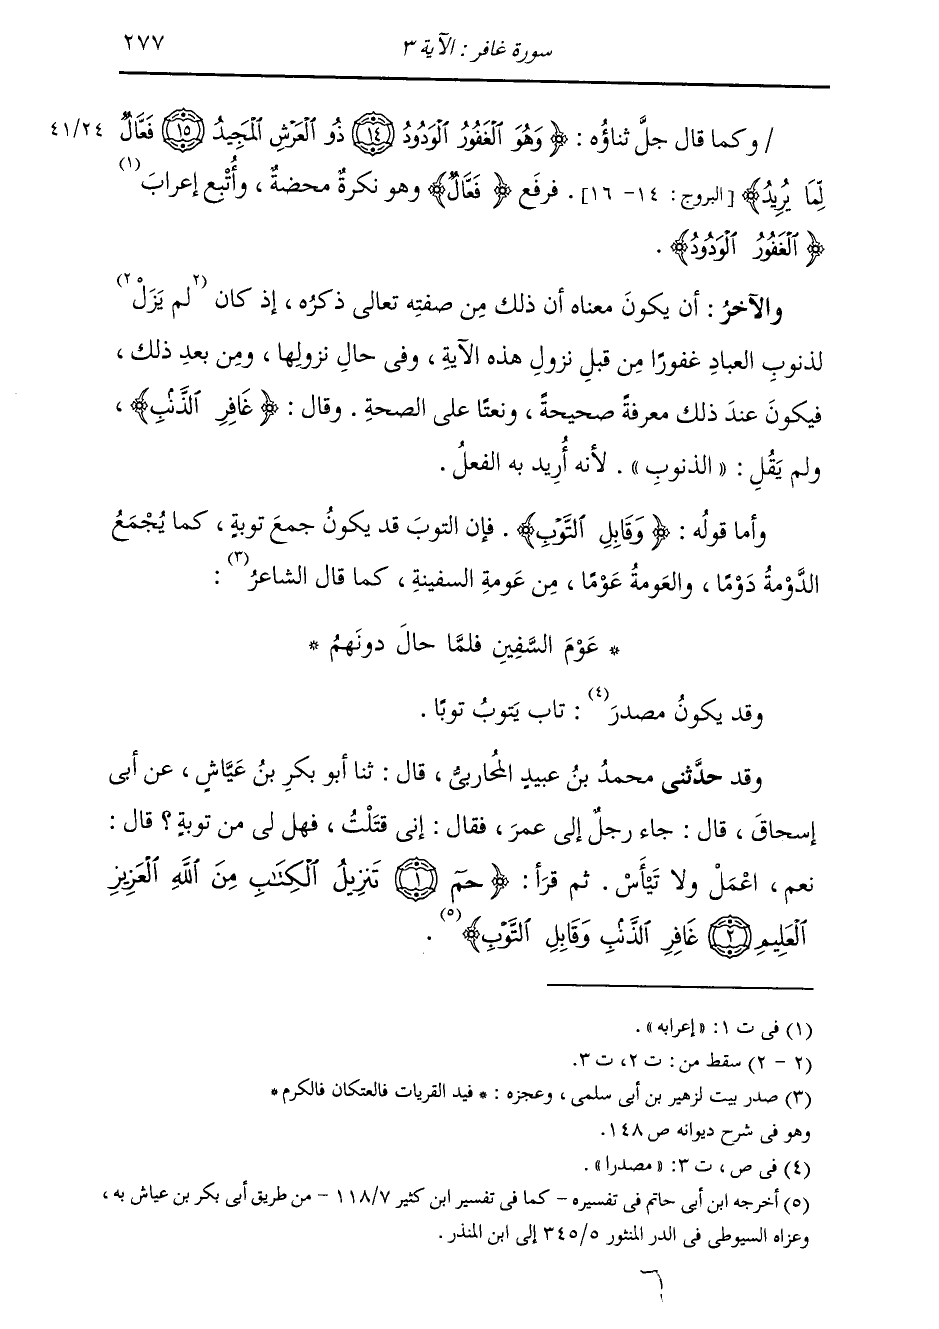 سورة غافر : الآية ٣
٢٧٧
/ وكما قال جلَّ ثناؤُه : ﴿ وَهُوَ ٱلْغَفُورُ ٱلْوَدُودُ ١٤ ذُو ٱلْعَرْشِ ٱلْمَجِيدُ ١٥ فَعَّالٌ ٤١/٢٤
لِّمَا يُرِيدُ﴾ [البروج : ١٤- ١٦] . فرفَع ﴿ فَعَّالٌ﴾ وهو نكرةٌ محضةٌ ، وأُتْبِع إعرابَ(١)
﴿ ٱلْغَفُورُ ٱلْوَدُودُ﴾ .
والآخرُ : أن يكونَ معناه أن ذلك مِن صفتِه تعالى ذكرُه ، إذ كان (٢لم يَزَلْ٢)
لذنوبِ العبادِ غفورًا مِن قبلِ نزولِ هذه الآيةِ ، وفى حالِ نزولِها ، ومِن بعدِ ذلك ،
فيكونَ عندَ ذلك معرفةً صحيحةً ، ونعتًا على الصحةِ . وقال : ﴿ غَافِرِ ٱلذَّنۢبِ﴾ ،
ولم يَقُلِ : « الذنوبِ » . لأنه أُرِيد به الفعلُ .
وأما قولُه : ﴿ وَقَابِلِ ٱلتَّوْبِ﴾ . فإن التوبَ قد يكونُ جمعَ توبةٍ ، كما يُجْمَعُ
الدَّوْمةُ دَوْمًا ، والعَومةُ عَوْمًا ، مِن عَومةِ السفينةِ ، كما قال الشاعرُ(٣) :
* عَوْمَ السَّفِينِ فلمَّا حالَ دونَهمُ *
وقد يكونُ مصدرَ(٤) : تاب يَتوبُ توبًا .
وقد حدَّثنى محمدُ بنُ عبيدٍ المُحاربىُّ ، قال : ثنا أبو بكرِ بنُ عَيَّاشٍ ، عن أبى
إسحاقَ ، قال : جاء رجلٌ إلى عمرَ ، فقال : إنى قتَلْتُ ، فهل لى من توبةٍ ؟ قال :
نعم ، اعْمَلْ ولا تَيْأَسْ . ثم قرَأ : ﴿ حمٓ ١ تَنزِيلُ ٱلْكِتَٰبِ مِنَ ٱللَّهِ ٱلْعَزِيزِ
ٱلْعَلِيمِ ٢ غَافِرِ ٱلذَّنۢبِ وَقَابِلِ ٱلتَّوْبِ﴾(٥) .
(١) فى ت ١: «إعرابه» .
(٢ - ٢) سقط من : ت ٢، ت ٣.
(٣) صدر بيت لزهير بن أبى سلمى ، وعجزه : * فيد القريات فالعتكان فالكرم *
وهو فى شرح ديوانه ص ١٤٨.
(٤) فى ص ، ت ٣: «مصدرا» .
(٥) أخرجه ابن أبى حاتم فى تفسيره - كما فى تفسير ابن كثير ١١٨/٧ - من طريق أبى بكر بن عياش به ،
وعزاه السيوطى فى الدر المنثور ٣٤٥/٥ إلى ابن المنذر .